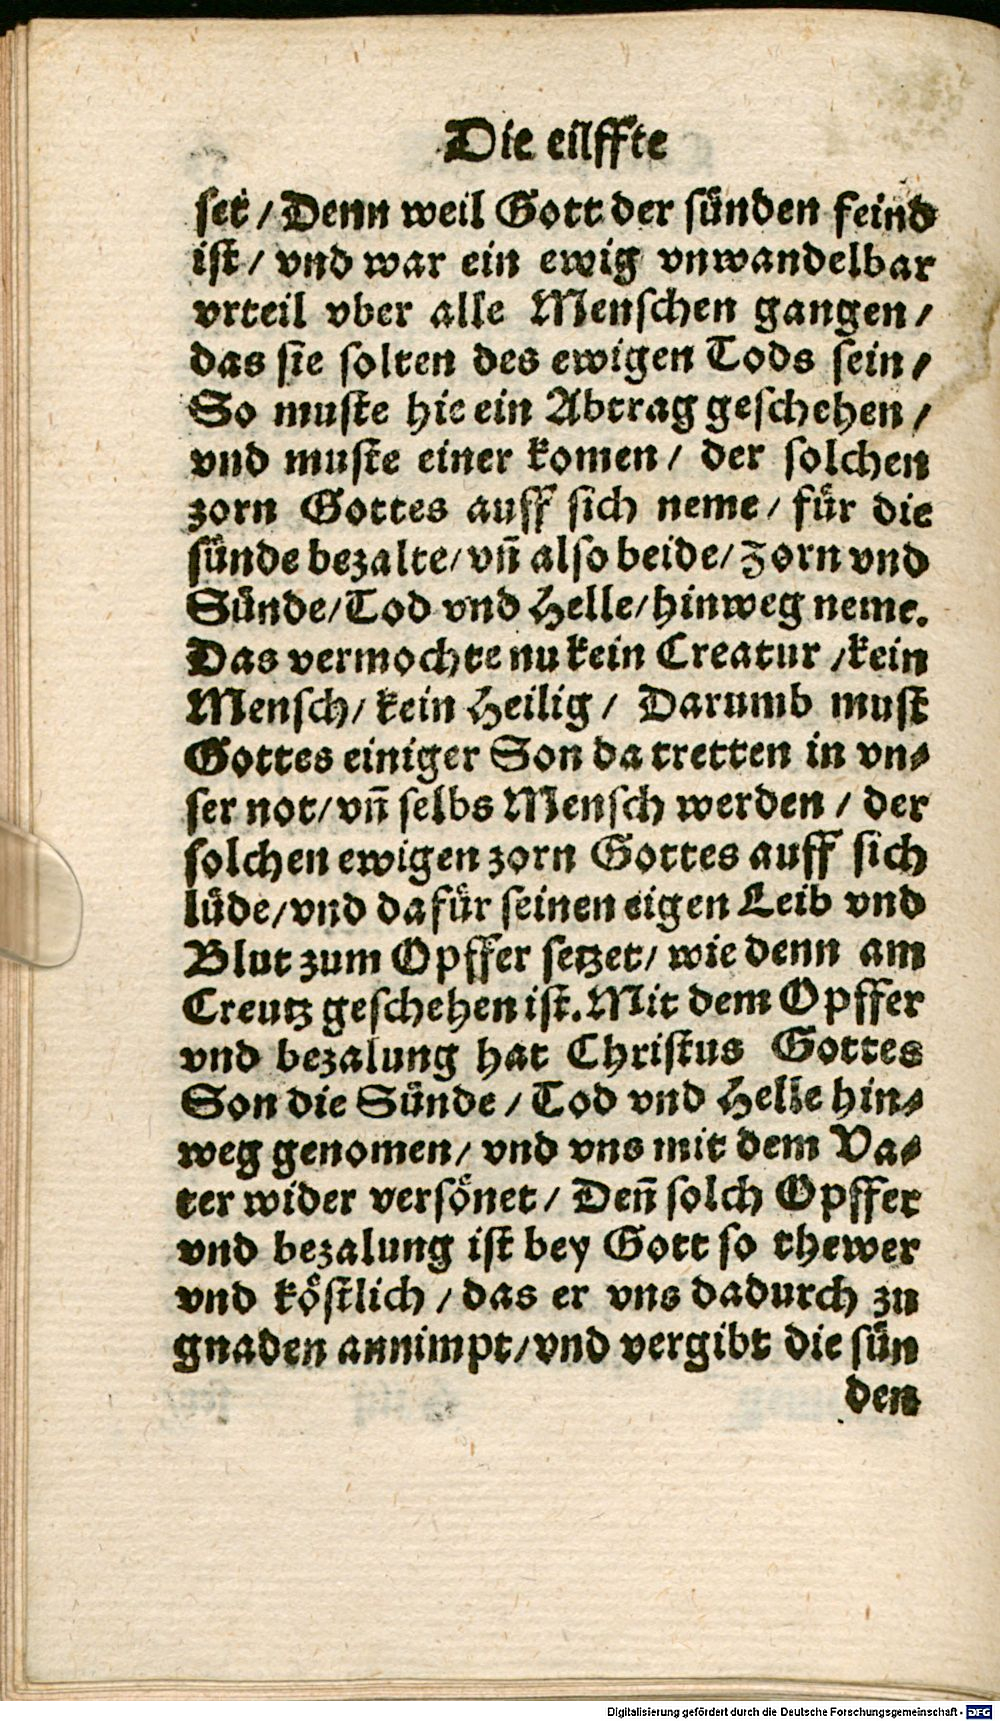 Die eilffte
set / Denn weil Gott der sünden feind
ist / vnd war ein ewig vnwandelbar
vrteil vber alle Menschen gangen /
das sie solten des ewigen Tods sein /
So muste hie ein Abtrag geschehen /
vnd muste einer komen / der solchen
zorn Gottes auff sich neme / für die
sünde bezalte / vn̄ also beide / Zorn vnd
Sünde / Tod vnd Helle / hinweg neme.
Das vermochte nu kein Creatur / kein
Mensch / kein Heilig / Darumb must
Gottes einiger Son da tretten in vn⸗
ser not / vn̄ selbs Mensch werden / der
solchen ewigen zorn Gottes auff sich
lüde / vnd dafür seinen eigen Leib vnd
Blut zum Opffer setzet / wie denn am
Creutz geschehen ist. Mit dem Opffer
vnd bezalung hat Christus Gottes
Son die Sünde / Tod vnd Helle hin⸗
weg genomen / vnd vns mit dem Va⸗
ter wider versönet / Den̄ solch Opffer
vnd bezalung ist bey Gott so thewer
vnd köstlich / das er vns dadurch zu
gnaden annimpt / vnd vergibt die sün
den
Digitalisierung gefördert durch die Deutsche Forschungsgemeinschaft - DFG